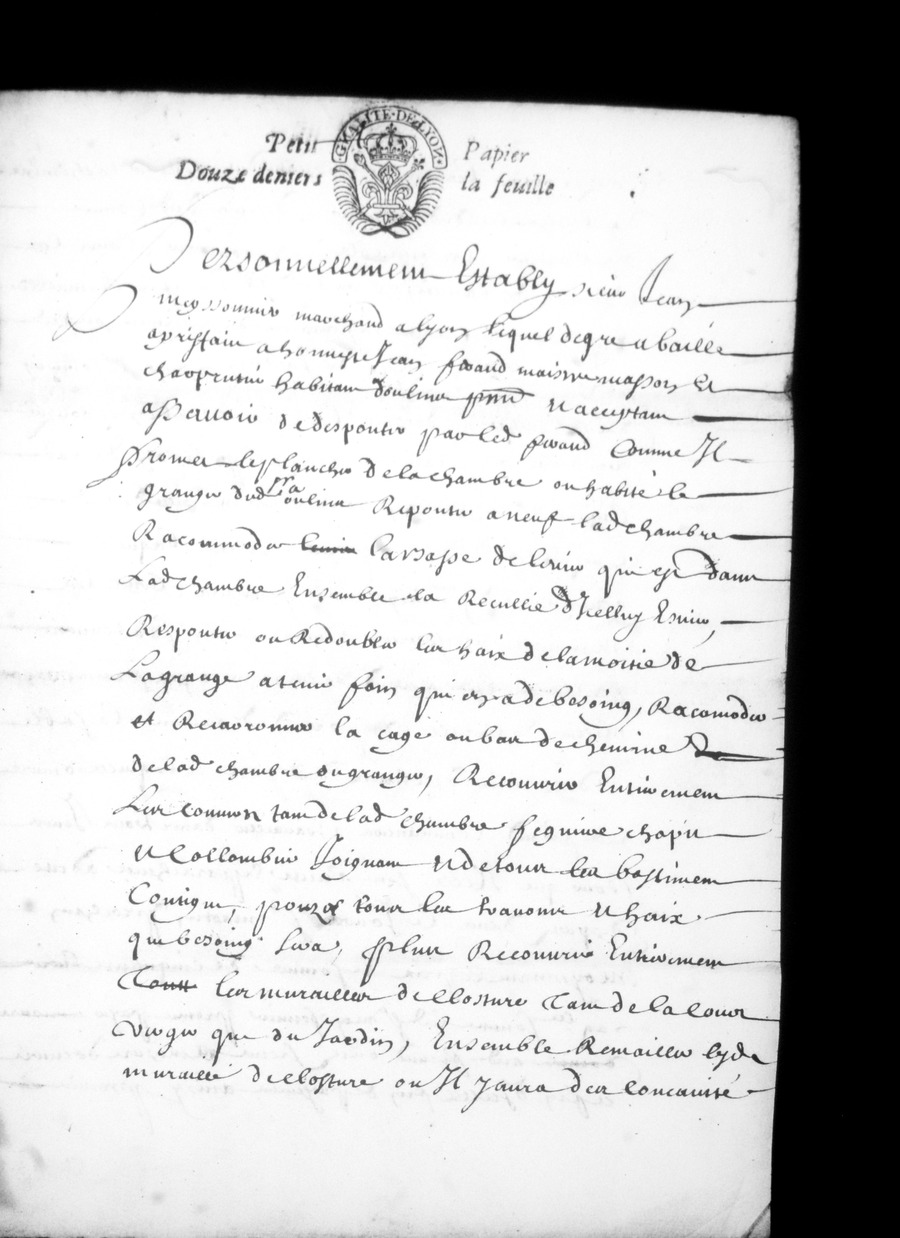 GNALITE·DE·LYON·
Petit Papier
Douze deniers la feuille
Personnellement Estably sieur Jean
meyssonnier marchand a lyon lequel de gre a baillé
a prisfaict a honneste Jean feraud maistre masson et
charpentier habitant doulins pnt et acceptant
assavoir de despontir par led feraud comme Il
promet le plancher de la chambre ou habité le
granger dud oulins Repontir a neuf lad chambre
Racommoder la de qui est dans
Lad chambre Ensemble la d
Respontir ou Redoubler les haix de la moitie de
La grange a tenir foin qui en a de besoing, Racomoder
et la cage ou bas de chemine
de lad chambre ou granger, Recouvrir Entierement
Les couverts tant de lad chambre chapit
et Collombier Joignant et de tour les bastiment
Contigus, pozer tous les travons et haix
que besoing sera, plus Recouvrir Entierement
les murailles de closture tant de la cour
verger que du Jardin, Ensemble Remailler
muraille de closture ou Il y aura des concavité